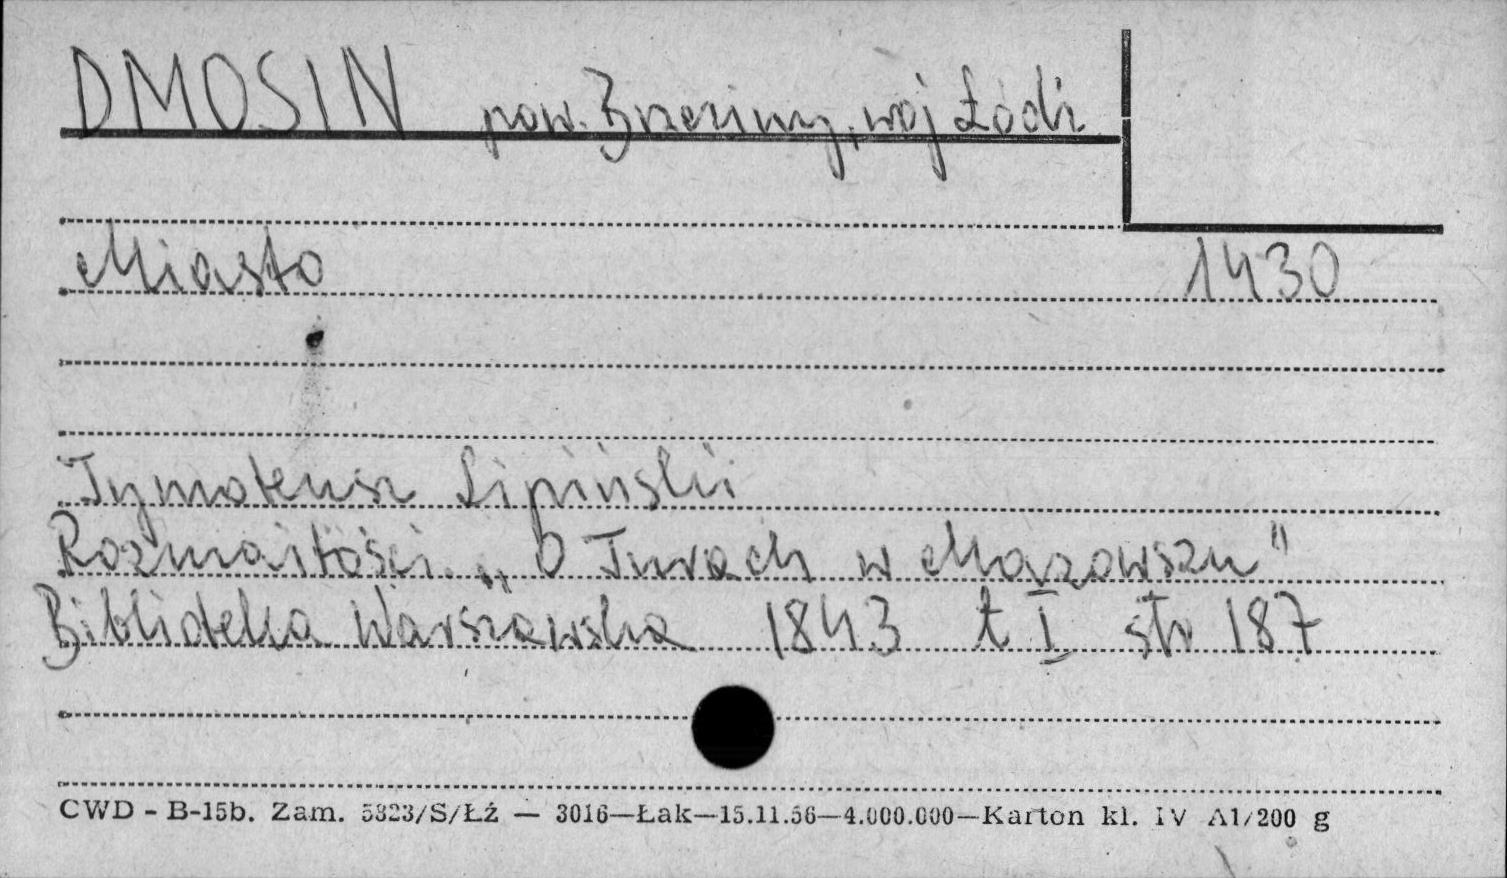 DMOSIN pow. Brzeziny, woj Łódź
Miasto 1430
Tymoteusz Lipiński
Rozmaitości. „O Turach w Mazowszu"
Biblioteka Warszawska 1843 t I str 187
CWD - B-15b. Zam. 5323/S/Łź — 3016—Łak—15.11.56—4.000.000—Karton kl. IV A1/200 g